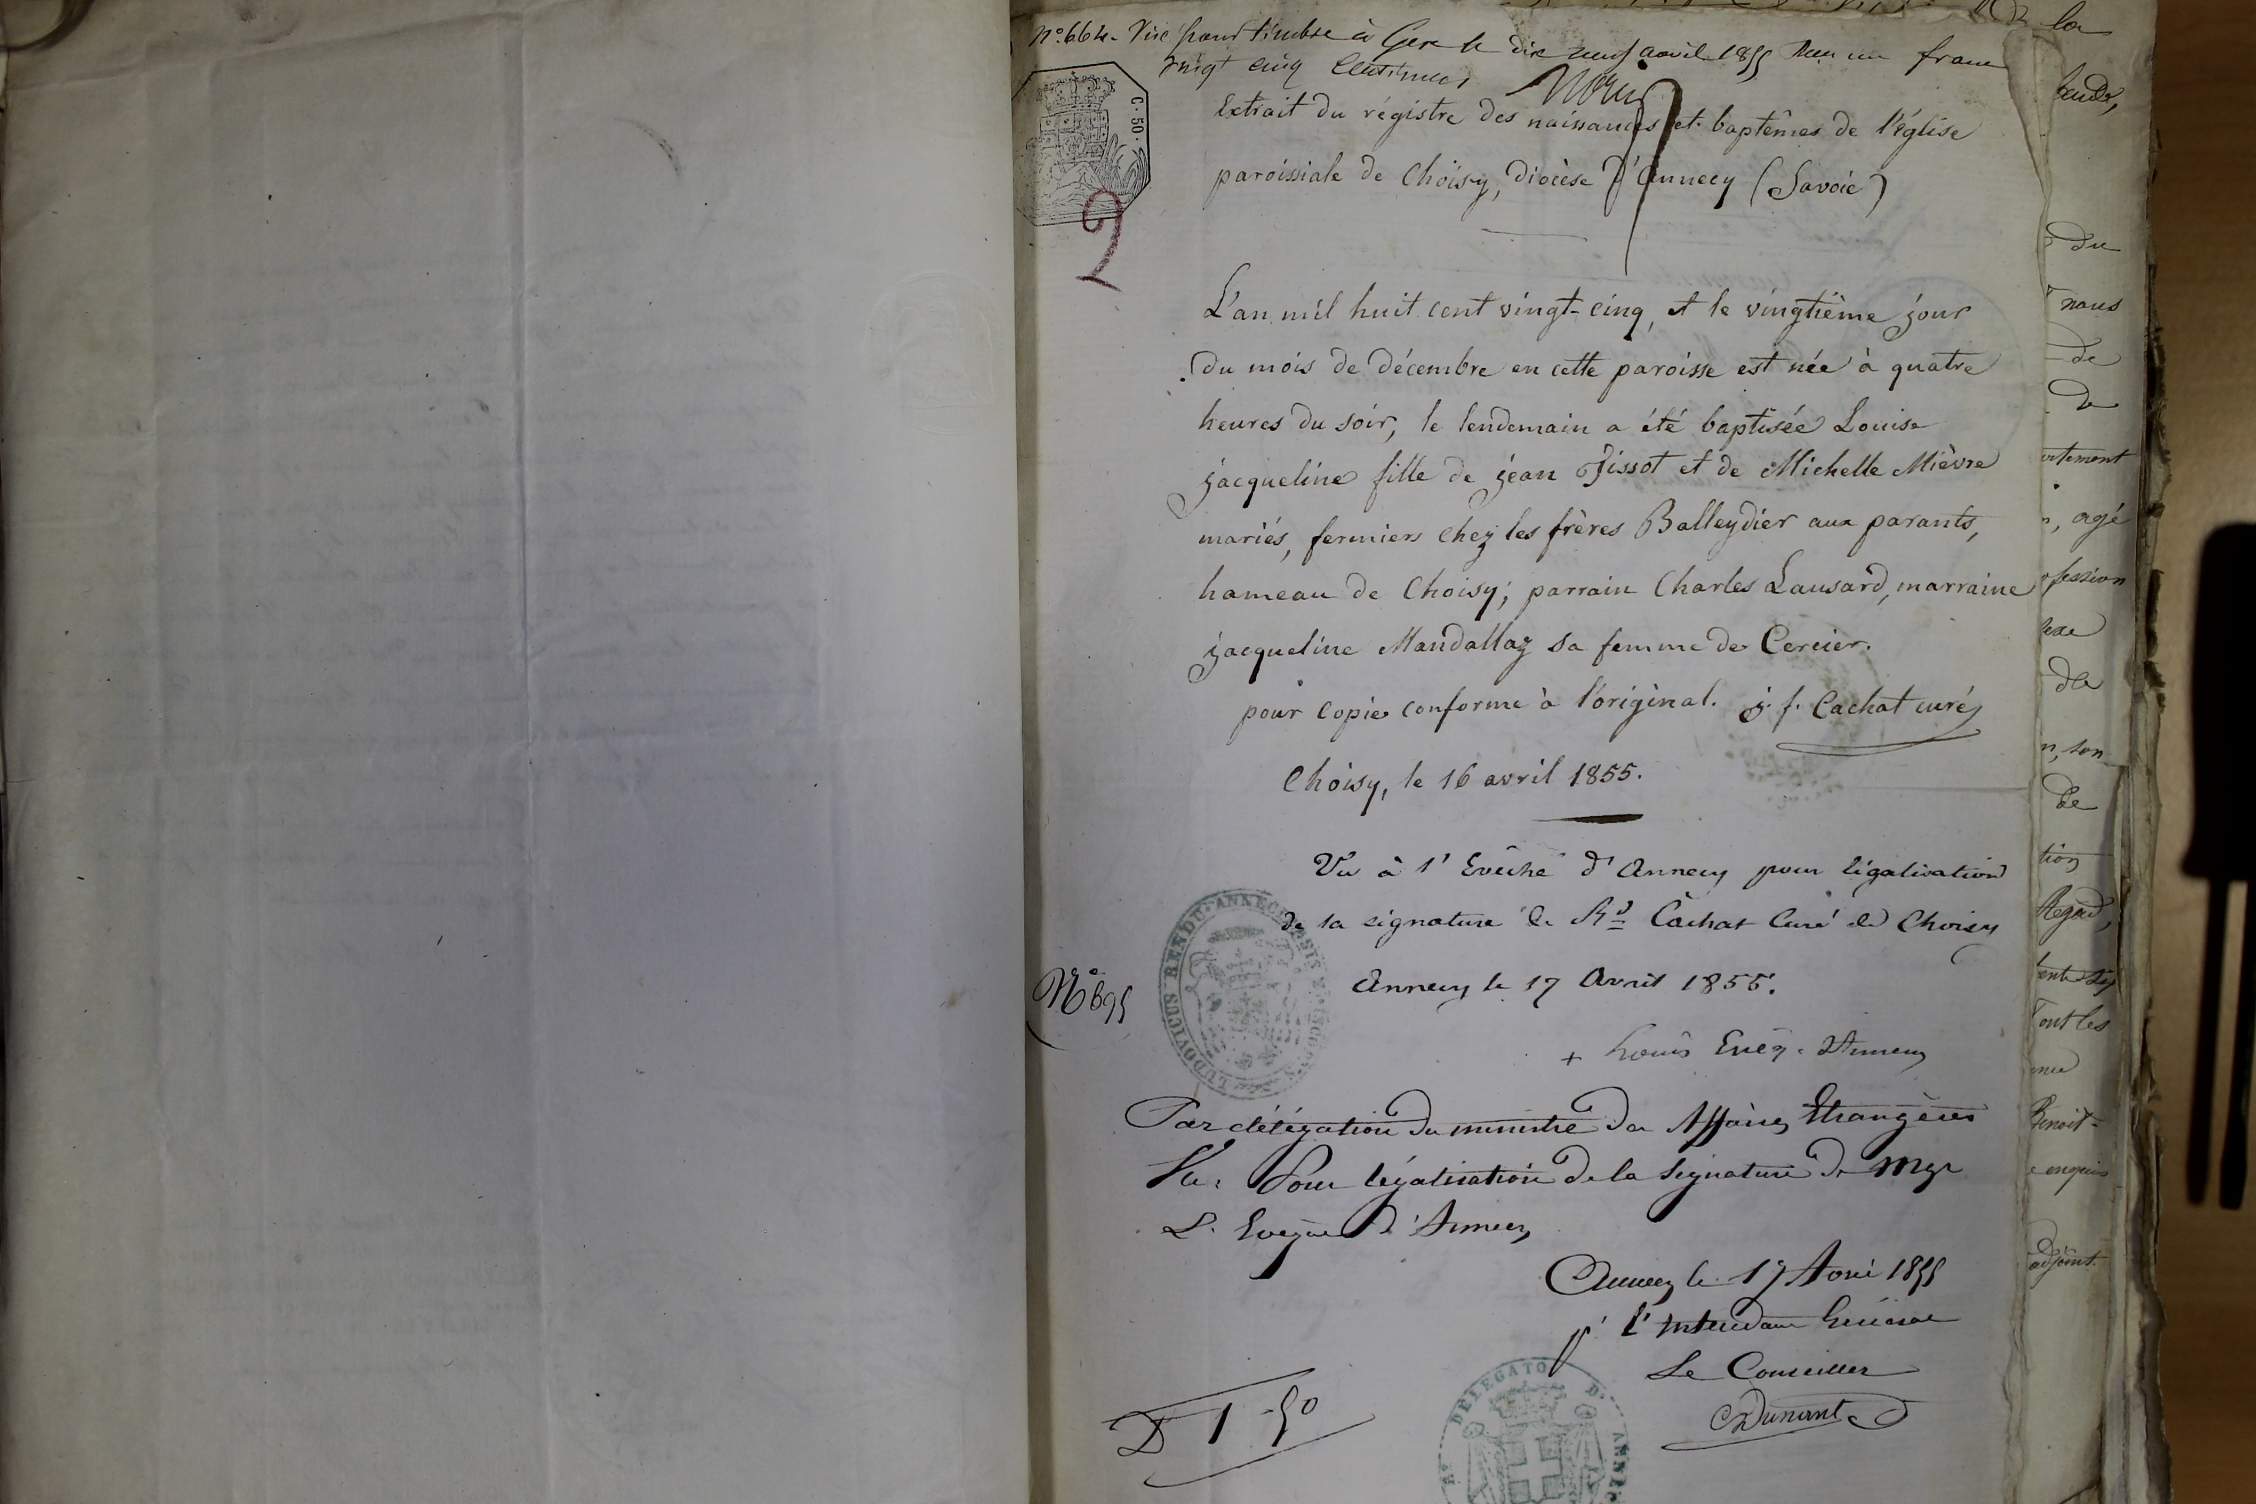 N.º 664. Visé pour timbre à Gex le dix neuf avril 1855 Reçu un franc
vingt cinq centimes
C. 50.
2
Extrait du régistre des naissances et baptêmes de l'église
paroissiale de Choisy, diocèse d'Annecy (Savoie)
L'an mil huit cent vingt-cinq, et le vingtième jour
du mois de décembre en cette paroisse est née à quatre
heures du soir, le lendemain a été baptisée Louise
jacqueline fille de jean Tissot et de Michelle Mièvre
mariés, fermiers chez les frères Balleydier aux parants,
hameau de Choisy; parrain Charles Lausard, marraine
jacqueline Mandallaz sa femme de Cercier.
pour copie conforme à l'original. j. f. Cachat curé
Choisy, le 16 avril 1855.
Vu à l'Evêché d'Annecy pour légalisation
de la signature de Rd Cachat Curé de Choisy
Annecy le 17 Avril 1855.
LUDOVICUS RENDU
Nº 695
+ Louis Evêq. d'Annecy
Par délégation du ministre des Affaires Etrangères
Vu Pour légalisation de la signature de Mgr
L. Evêque d'Annecy
Annecy le 17 Avril 1855
pr L'Intendant Général
Le Conseiller
Dunant
D 1-50
la
du
nous
de
de
, agé
de
, son
de
Regard,
Tout les
Benoit-
adjoint.